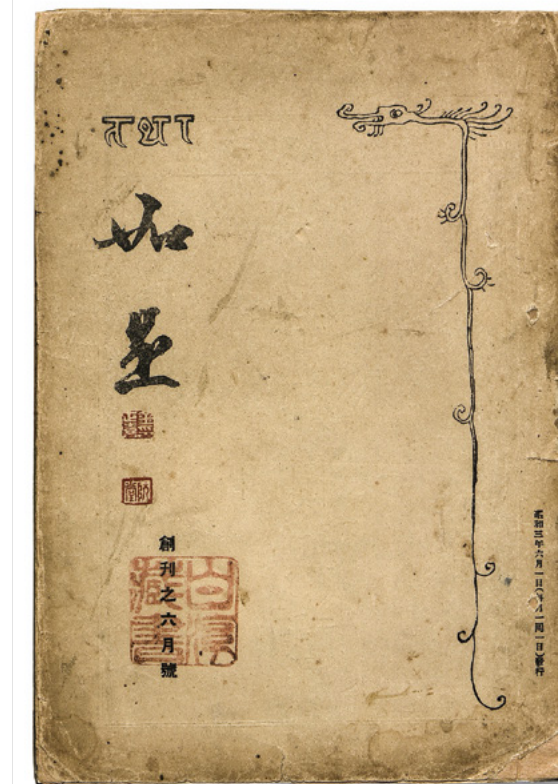 तथा
如是
創刊之六月號
昭和三年六月一日(每月一回一日)發行